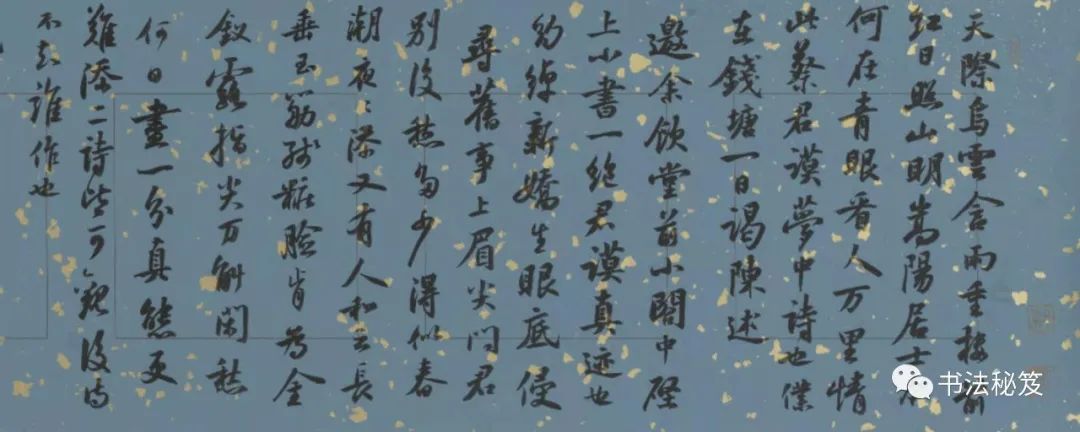 天際烏雲含雨重樓前
紅日照山明嵩陽居士
何在青眼看人万里情
此蔡君謨夢中詩也僕
在錢塘一日謁陳述
邀余飲堂前小閣中壁
上小書一絕君謨真迹也
約綽新嬌生眼底侵
尋舊事上眉尖問君
別後愁多少得似春
潮夜〻添又有人和云長
垂玉筯殘粧臉肯為金
釵露指尖万斛閑愁
何日盡一分真態更
難添二詩皆可觀後詩
不知誰作也
书法秘笈